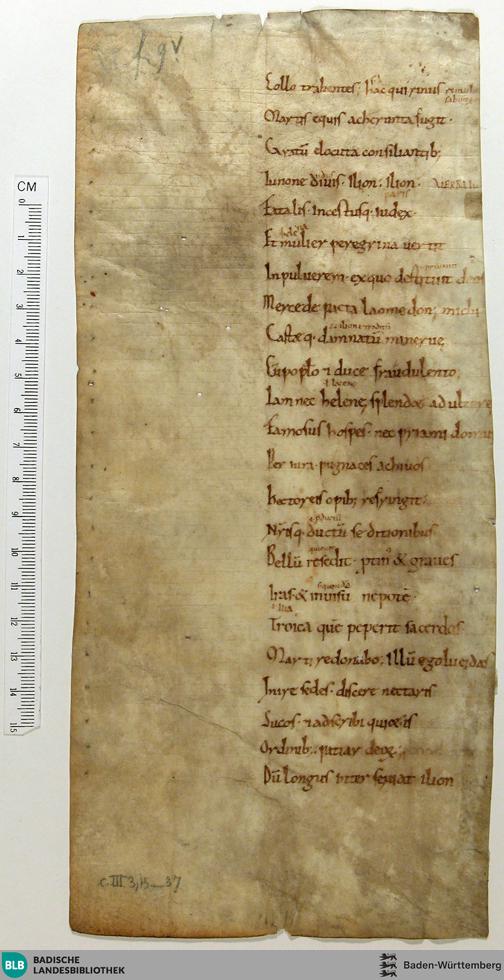 f. 9v
Collo trahentes; hac quirinus
Martis equis acherunta fugit.
Gratū elocuta consiliantib;
Iunone diuis. Ilion. ilion.
Fatalis Incestusq. iudex.
Et mulier peregrina uertit
In puluerem. ex quo destituit deos
Mercede pacta laomedon; michi
Castæq. damnatū mineruę
Cū pop̄lo & duce fraudulento.
Iam nec helenę splendet adulterę
Famosus hospes. nec priami domus
Per iura. pugnaces achiuos
Hectoreis opib; refringit;
Nr̄isq. ductū seditionibus
Bellū resedit. ptin & graues
Iras & inuisū nepotē.
Troica quē peperit sacerdos.
Marti redonabo; Illū ego lucidas
Inire sedes. discere nectaris
Sucos. & adscribi quietis
Ordinib; patiar deoȝ.
Dū longus inter seuiat ilion
c. III 3, 15_37
CM
0
1
2
3
4
5
6
7
8
9
10
11
12
13
14
15
BLB
BADISCHE
LANDESBIBLIOTHEK
Baden-Württemberg